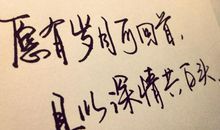 愿有岁月可回首，
且以深情共白头。